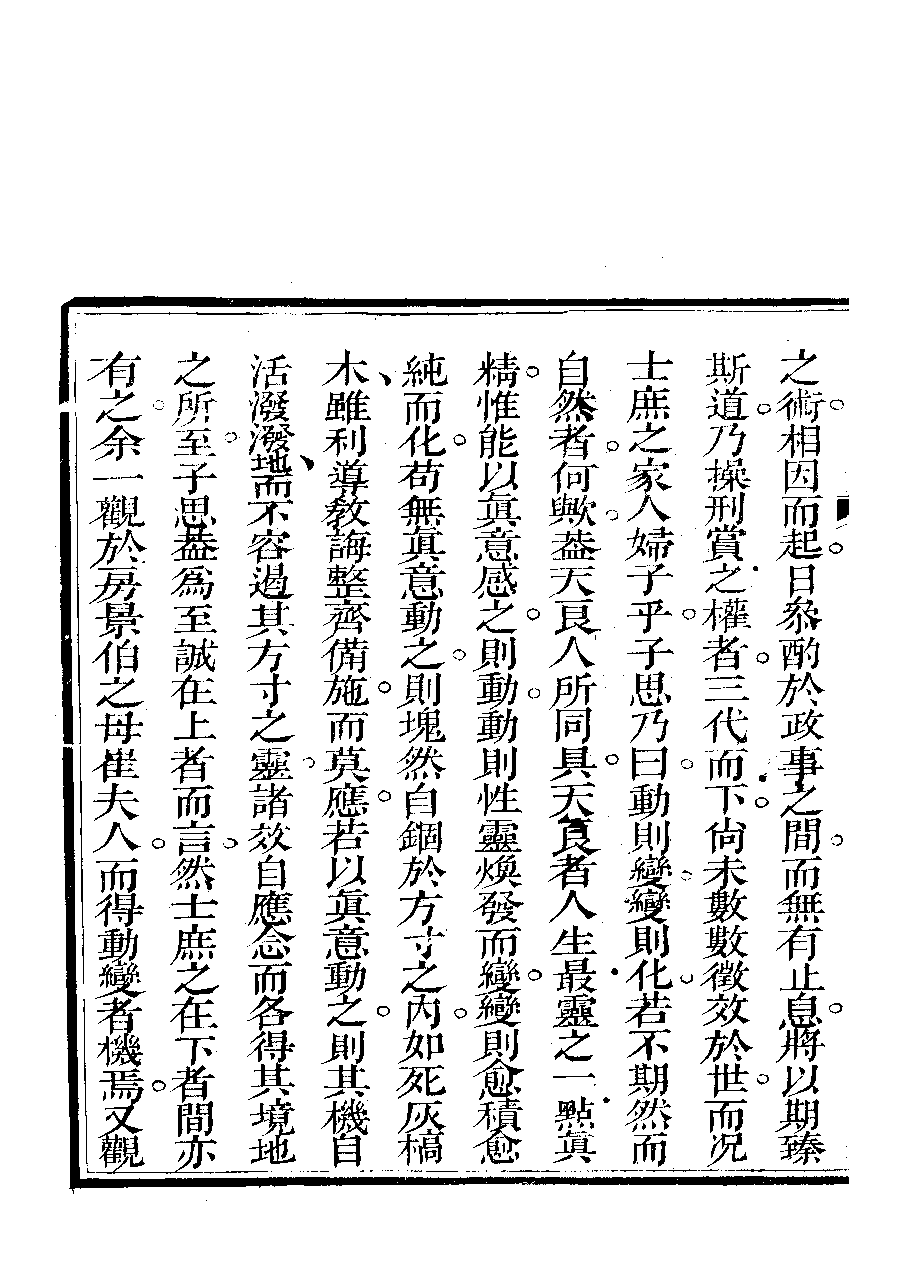 之術相因而起日叅酌於政事之間而無有止息將以期臻
斯道乃操刑賞之權者三代而下尙未數數徵效於世而况
士庶之家人婦子乎子思乃曰動則變變則化若不期然而
自然者何歟葢天良人所同具天良者人生最靈之一點眞
精惟能以眞意感之則動動則性靈煥發而變變則愈積愈
純而化苟無眞意動之則塊然自錮於方寸之內如死灰槁
木雖利導敎誨整齊備施而莫應若以眞意動之則其機自
活潑潑地而不容遏其方寸之靈諸效自應念而各得其境地
之所至子思葢為至誠在上者而言然士庶之在下者間亦
有之余一觀於房景伯之母崔夫人而得動變者機焉又觀